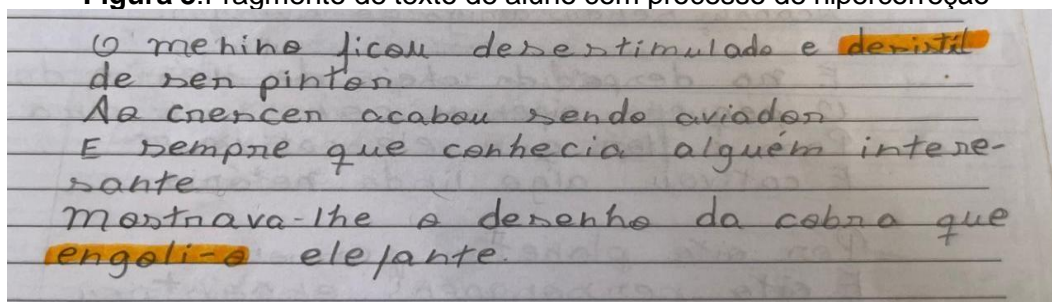 Figura 3.Fragmento de texto de aluno com processo de hipercorreção
O menino ficou desestimulado e desistil
de ser pintor
Ao crescer acabou sendo aviador
E sempre que conhecia alguém intere-
sante
mostrava-lhe o desenho da cobra que
engoli-o elefante.